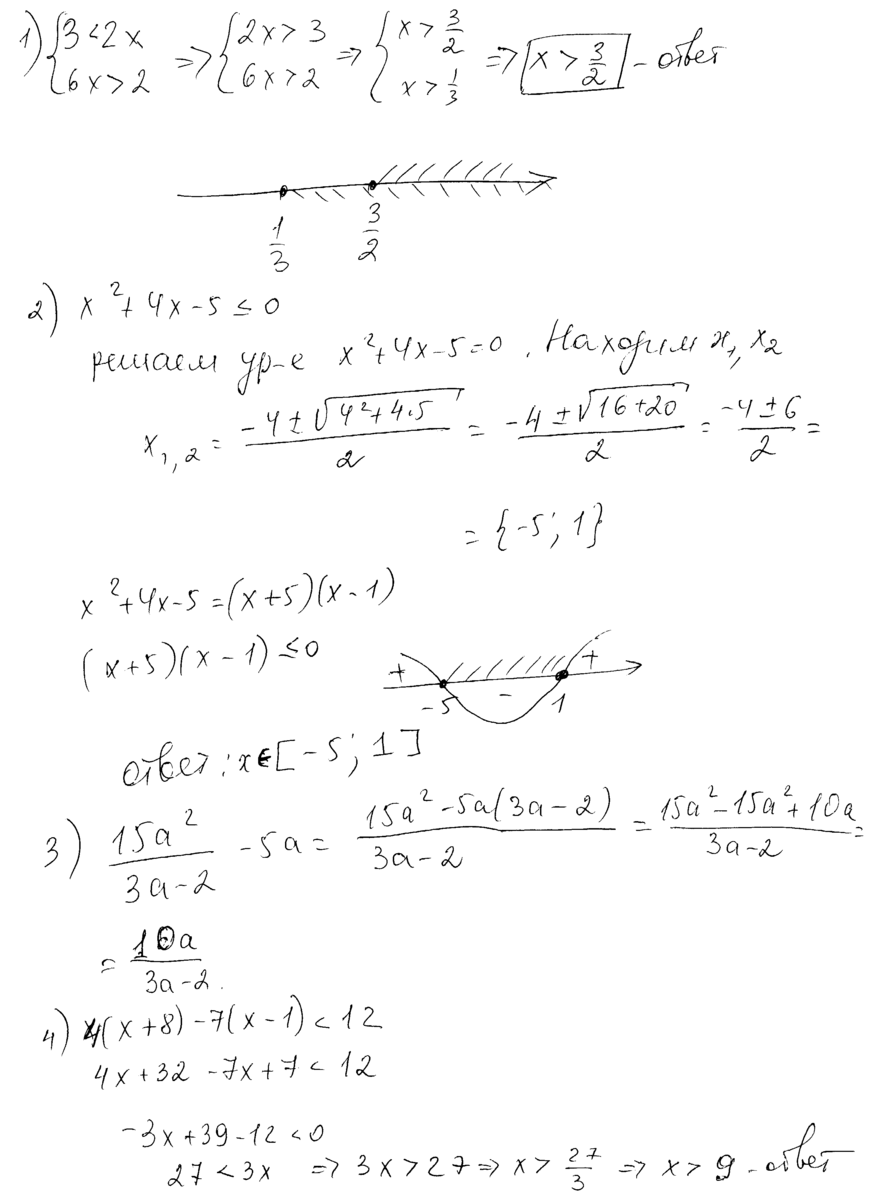 1) {3<2x 6x>2 => {2x>3 6x>2 => {x>3/2 x>1/3 => x>3/2 - ответ
1/3 3/2
2) x²+4x-5≤0
решаем ур-е x²+4x-5=0. Находим x₁, x₂
x₁,₂ = (-4±√(4²+4·5))/2 = (-4±√(16+20))/2 = (-4±6)/2 =
= {-5; 1}
x²+4x-5=(x+5)(x-1)
(x+5)(x-1)≤0
+ - +
-5 1
ответ: x∈[-5; 1]
3) 15a²/(3a-2) - 5a = (15a²-5a(3a-2))/(3a-2) = (15a²-15a²+10a)/(3a-2) =
= 10a/(3a-2).
4) 4(x+8)-7(x-1)<12
4x+32-7x+7<12
-3x+39-12<0
27<3x => 3x>27 => x>27/3 => x>9 - ответ